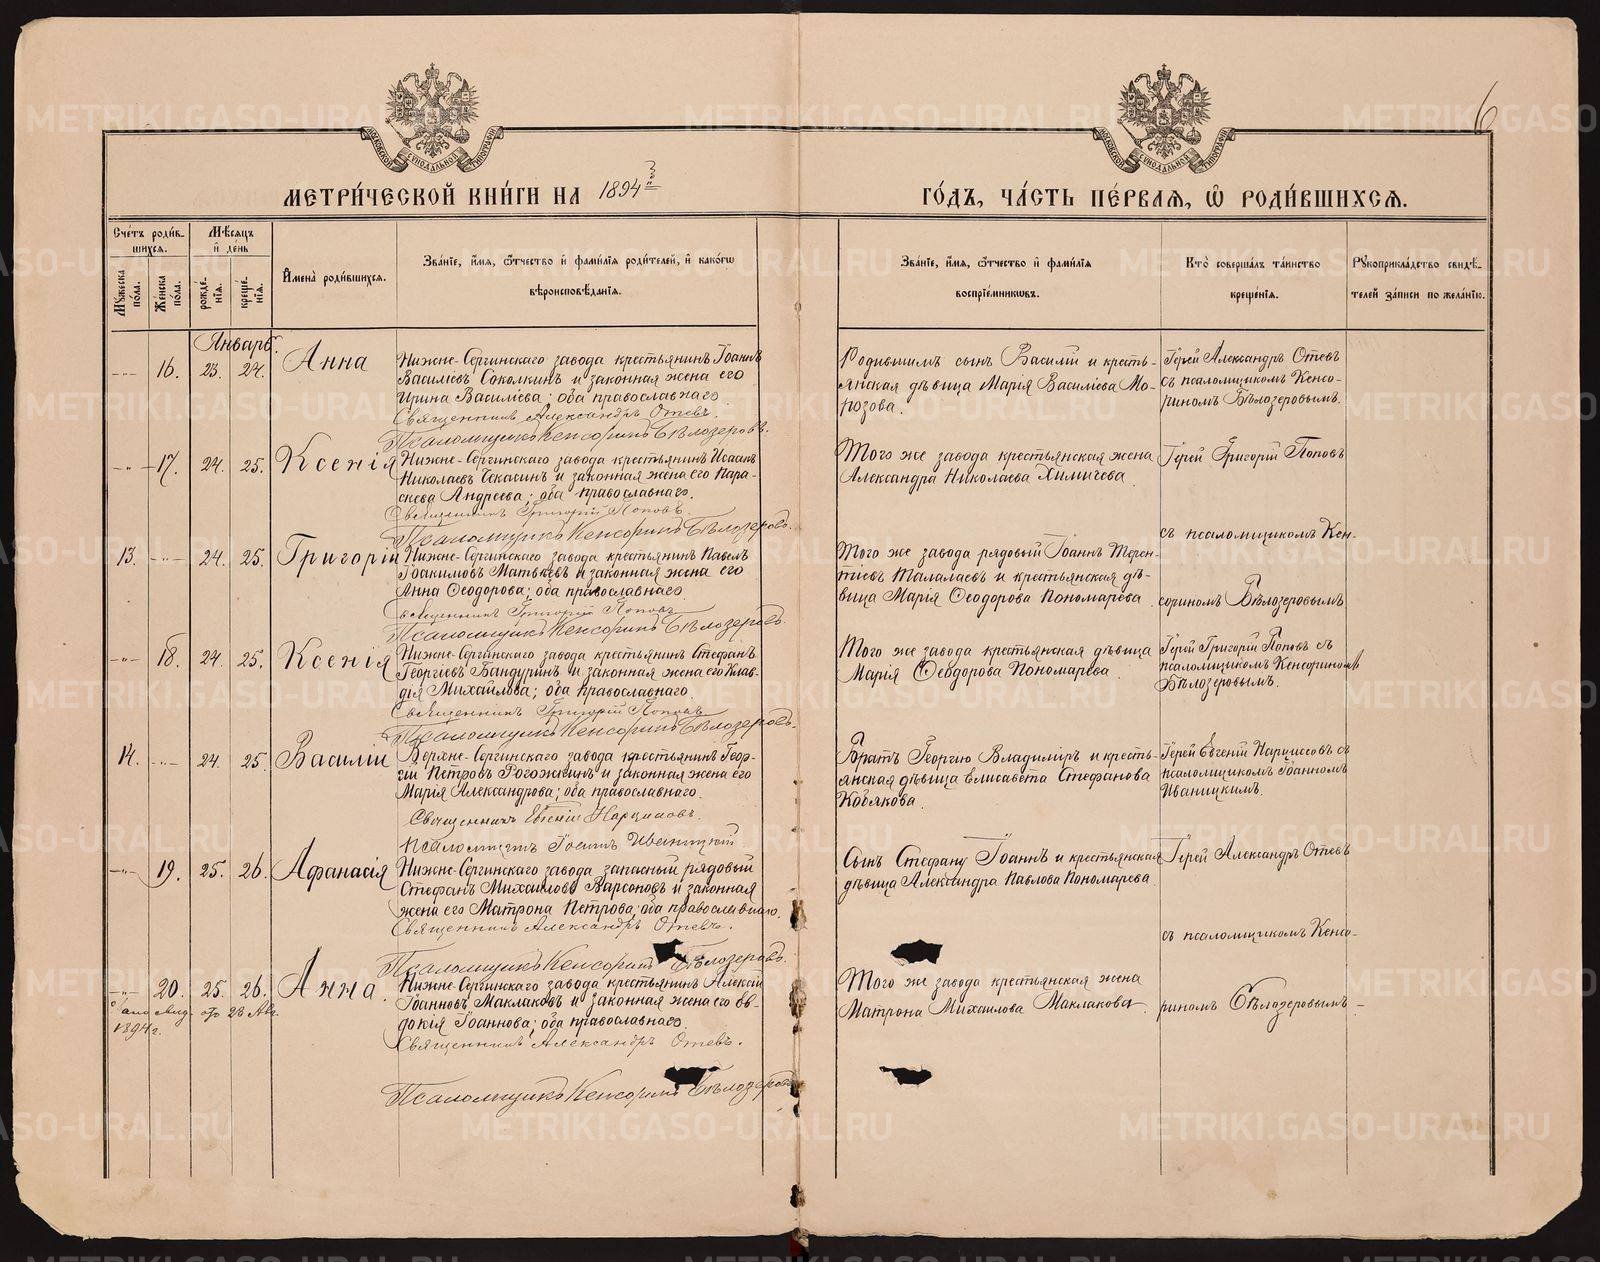 6
МОСКОВСКОЙ СѴНОДАЛЬНОЙ ТИПОГРАФІИ
МОСКОВСКОЙ СѴНОДАЛЬНОЙ ТИПОГРАФІИ
МЕТРИ́ЧЕСКОЙ КНИ́ГИ НА 1894й
ГО́ДЪ, ЧА́СТЬ ПЕ́РВАѦ, Ѡ РОДИ́ВШИХСѦ.
Сче́тъ роди́в-
шихся.
Мѣ́сяцъ
и де́нь
Му́жеска по́ла.
Же́нска по́ла.
рожде́-
нїѧ.
креще́-
нїѧ.
И́мена̀ роди́вшихся.
Зва́нїе, и́мѧ, ѻ́тчество и фами́лїѧ роди́телей, и како́гѡ
вѣроисповѣ́данїѧ.
Зва́нїе, и́мѧ, ѻ́тчество и фами́лїѧ
воспрїе́мникѡвъ.
Кто̀ соверша́лъ та́инство
креще́нїѧ.
Рꙋкоприкла́дство свидѣ́-
телей за́писи по жела́нїю.
Январь.
16. 23. 24. Анна
Нижне-Сергинскаго завода крестьянинъ Іоаннъ
Василіевъ Соколкинъ и законная жена его
Ирина Василіева; оба православнаго.
Священникъ Александръ Отевъ.
Псаломщикъ Кенсоринъ Бѣлозеровъ.
Родившимъ сынъ Василій и кресть-
янская дѣвица Марія Василіева Мо-
розова.
Іерей Александръ Отевъ
съ псаломщикомъ Кенсо-
риномъ Бѣлозеровымъ.
17. 24. 25. Ксенія
Нижне-Сергинскаго завода крестьянинъ Исаакъ
Николаевъ Чекасинъ и законная жена его Пара-
скева Андреева; оба православнаго.
Священникъ Григорій Поповъ.
Псаломщикъ Кенсоринъ Бѣлозеровъ.
Того же завода крестьянская жена
Александра Николаева Химичева
Іерей Григорій Поповъ
съ псаломщикомъ Кен-
сориномъ Бѣлозеровымъ
13. 24. 25. Григорій
Нижне-Сергинскаго завода крестьянинъ Павелъ
Іоакимовъ Матвѣевъ и законная жена его
Анна Ѳеодорова; оба православнаго.
Священникъ Григорій Поповъ
Псаломщикъ Кенсоринъ Бѣлозеровъ.
Того же завода рядовый Іоаннъ Терен-
тіевъ Талалаевъ и крестьянская дѣ-
вица Марія Ѳеодорова Пономарева
18. 24. 25. Ксенія
Нижне-Сергинскаго завода крестьянинъ Стефанъ
Георгіевъ Бандуринъ и законная жена его Клав-
дія Михайлова; оба православнаго.
Священникъ Григорій Поповъ
Псаломщикъ Кенсоринъ Бѣлозеровъ.
Того же завода крестьянская дѣвица
Марія Ѳеодорова Пономарева
Іерей Григорій Поповъ съ
псаломщикомъ Кенсориномъ
Бѣлозеровымъ.
14. 24. 25. Василій
Верхне-Сергинскаго завода крестьянинъ Геор-
гій Петровъ Рогожкинъ и законная жена его
Марія Александрова; оба православнаго.
Священникъ Евгеній Нарциссовъ.
Псаломщикъ Іоаннъ Иваницкій.
Братъ Георгію Владиміръ и кресть-
янская дѣвица Елисавета Стефанова
Кобякова
Іерей Евгеній Нарциссовъ съ
псаломщикомъ Іоанномъ
Иваницкимъ.
19. 25. 26. Афанасія
Нижне-Сергинскаго завода запасный рядовый
Стефанъ Михайловъ Варсоповъ и законная
жена его Матрона Петрова; оба православнаго.
Священникъ Александръ Отевъ.
Псаломщикъ Кенсоринъ Бѣлозеровъ.
Сынъ Стефану Іоаннъ и крестьянская
дѣвица Александра Павлова Пономарева
Іерей Александръ Отевъ
съ псаломщикомъ Кенсо-
риномъ Бѣлозеровымъ
20. 25. 26. Анна.
1894 г.
Нижне-Сергинскаго завода крестьянинъ Алексій
Іоанновъ Маклаковъ и законная жена его Ев-
докія Іоаннова; оба православнаго.
Священникъ Александръ Отевъ.
Псаломщикъ Кенсоринъ Бѣлозеровъ
Того же завода крестьянская жена
Матрона Михайлова Маклакова.